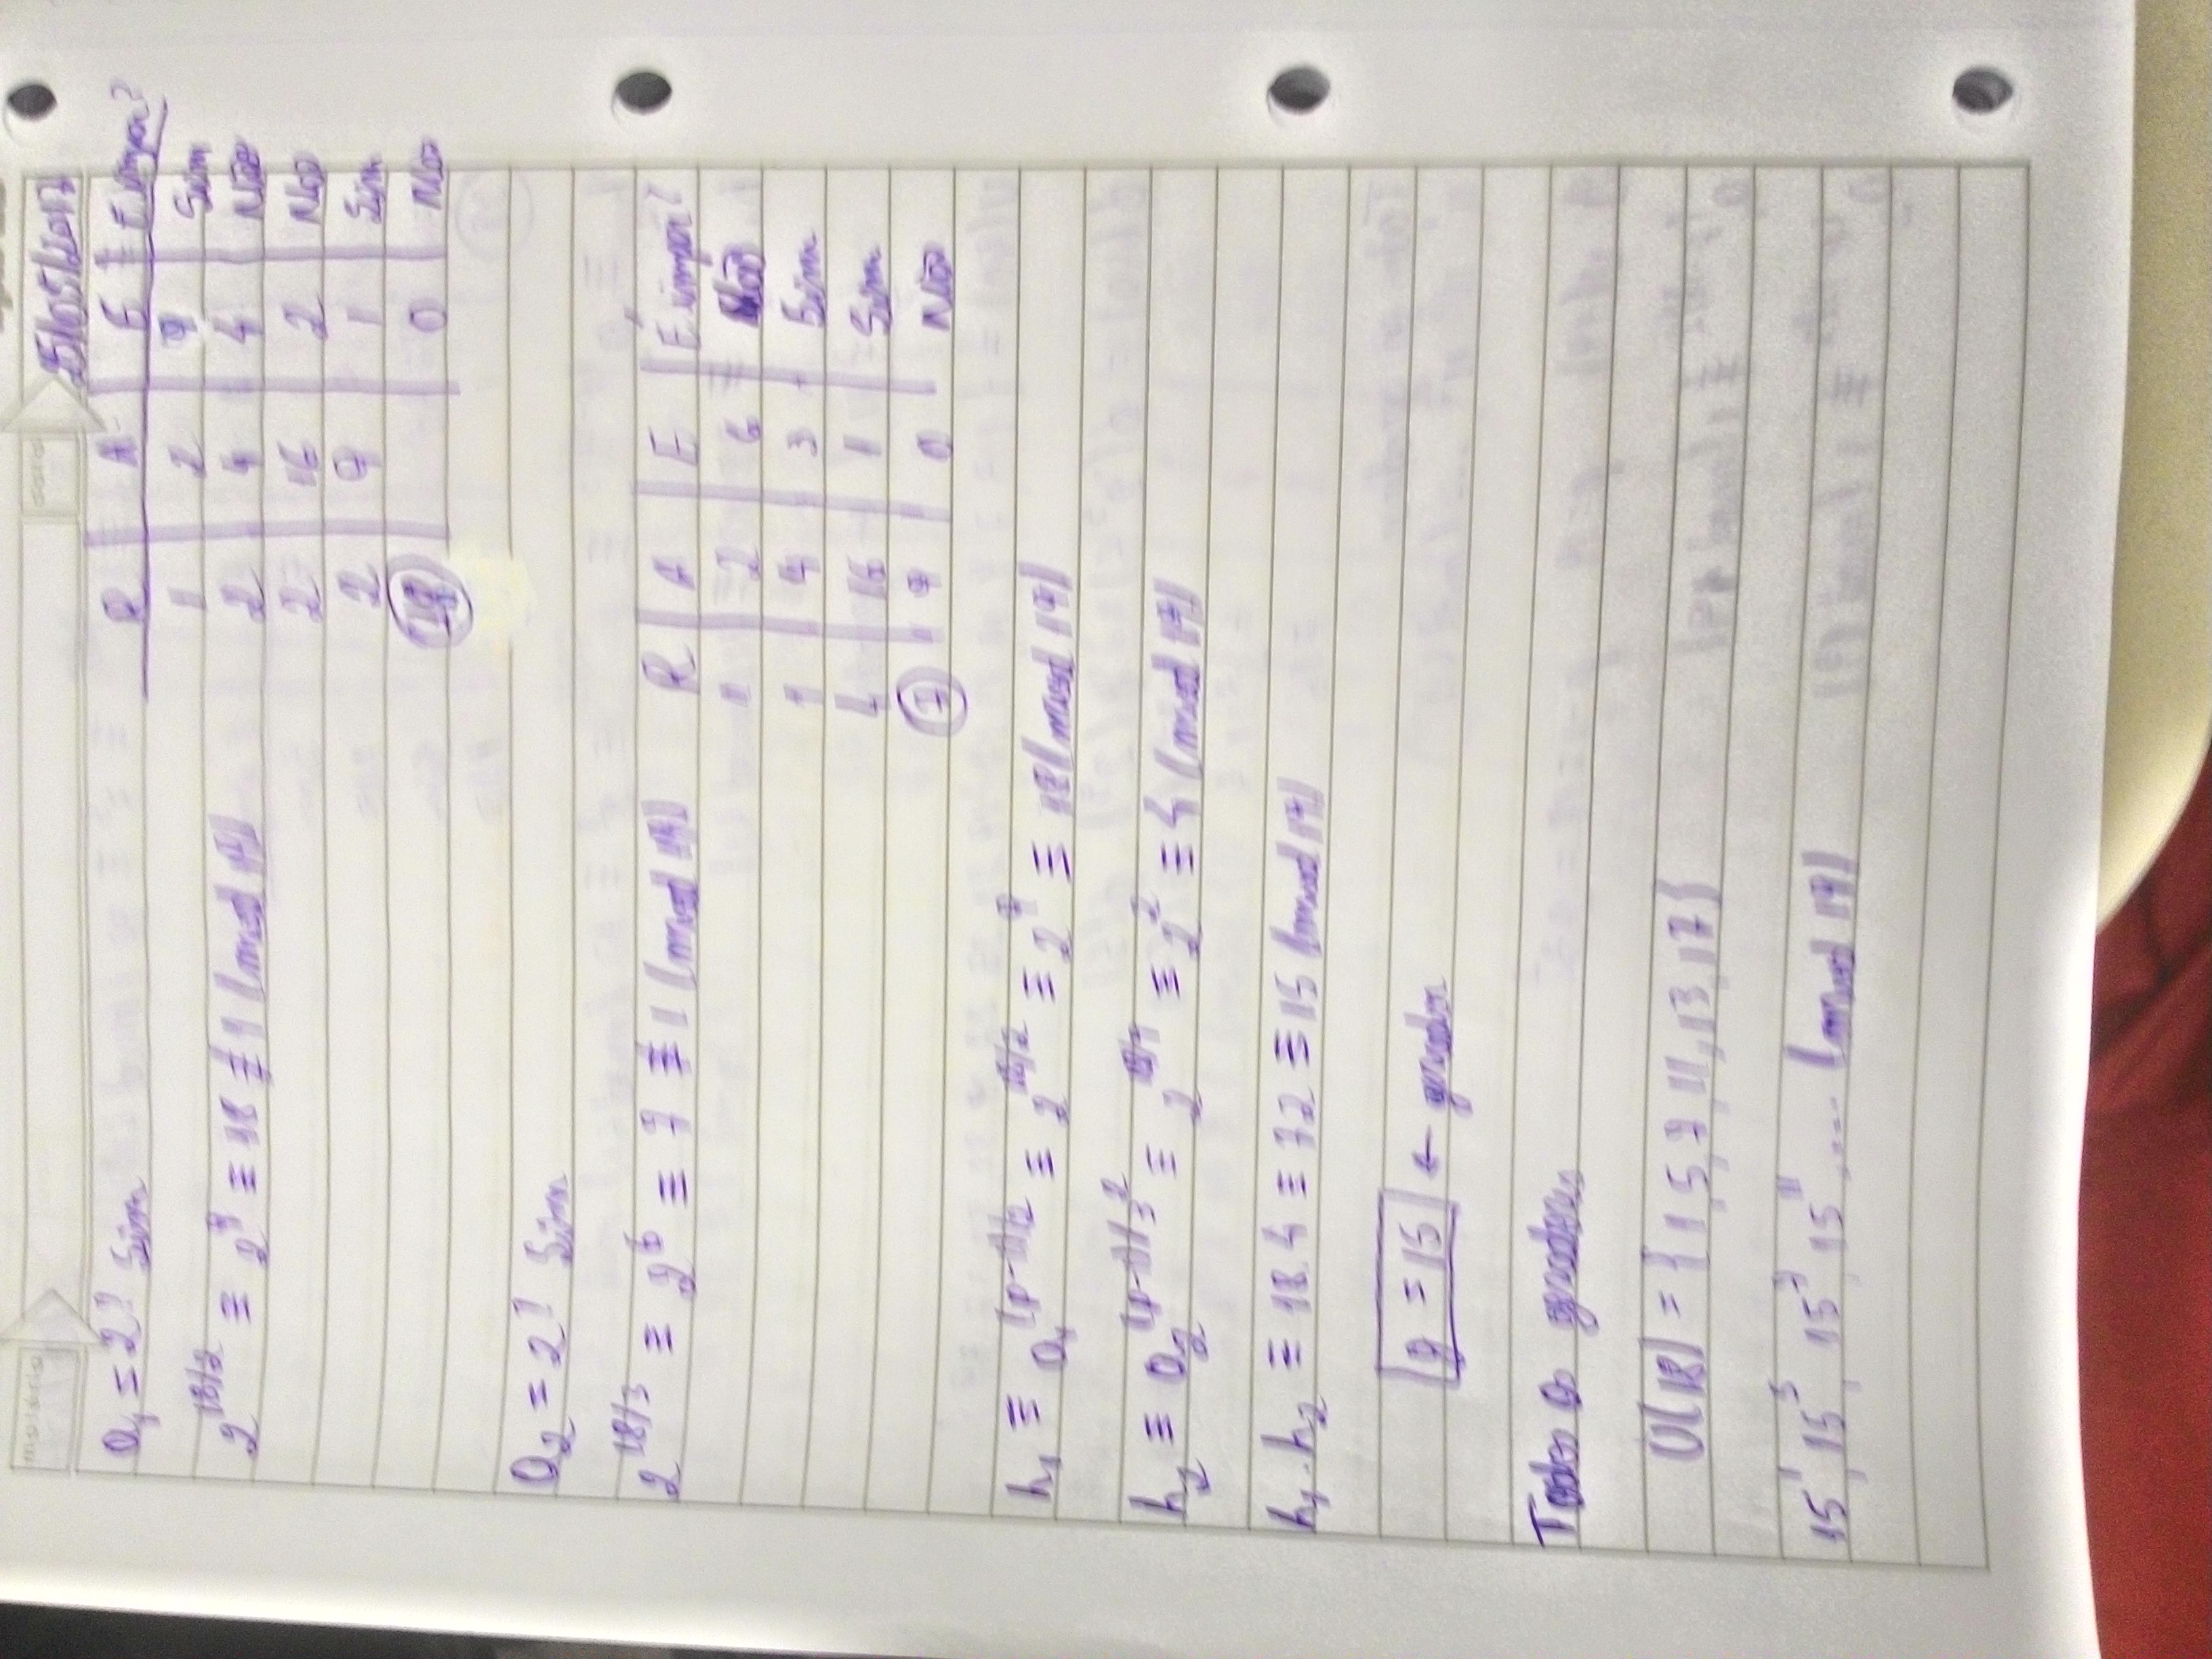 matéria data 25/05/2017
a₁ = 2? Sim
R A E É ímpar?
1 2 9 Sim
2^(18/2) ≡ 2^9 ≡ 18 ≢ 1 (mod 19)
2 4 4 Não
2 16 2 Não
2 9 1 Sim
18 0 Não
a₂ = 2? Sim
2^(18/3) ≡ 2^6 ≡ 7 ≢ 1 (mod 19)
R A E É ímpar?
1 2 6 Não
1 4 3 Sim
4 16 1 Sim
7 9 0 Não
h₁ ≡ a₁^((p-1)/2) ≡ 2^(18/2) ≡ 2^9 ≡ 18 (mod 19)
h₂ ≡ a₂^((p-1)/3²) ≡ 2^(18/9) ≡ 2² ≡ 4 (mod 19)
h₁.h₂ ≡ 18.4 ≡ 72 ≡ 15 (mod 19)
g = 15 ← gerador
Todos os geradores
U(18) = {1, 5, 7, 11, 13, 17}
15¹, 15⁵, 15⁷, 15¹¹, .... (mod 19)